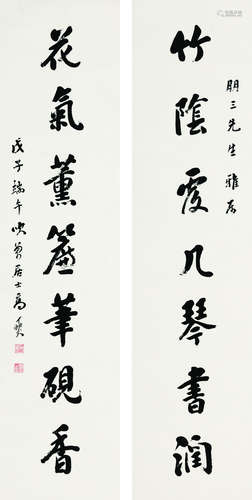 朋三先生雅属
竹陰覆几琴書潤
花氣薰簾筆硯香
戊子端午吹萬居士高燮